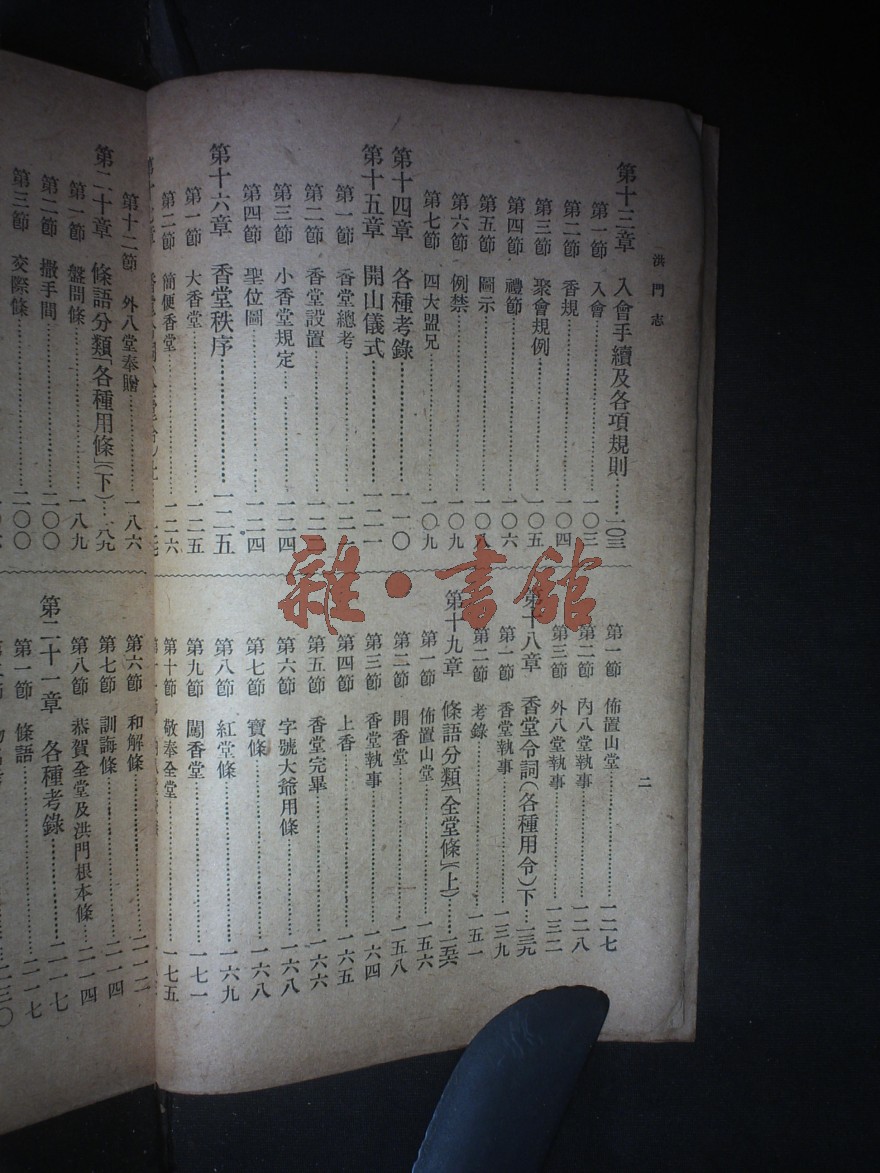 洪門志
第十三章 入會手續及各項規則………一〇三
第一節 入會………一〇三
第二節 香規………一〇四
第三節 聚會規例………一〇五
第四節 禮節………一〇六
第五節 圖示………一〇八
第六節 例禁………一〇九
第七節 四大盟兄………一〇九
第十四章 各種考錄………一一〇
第十五章 開山儀式………一二一
第一節 香堂總考………一二一
第二節 香堂設置………一二二
第三節 小香堂規定………一二四
第四節 聖位圖………一二四
第十六章 香堂秩序………一二五
第一節 大香堂………一二五
第二節 簡便香堂………一二六
第一節 佈置山堂………一二七
第二節 內八堂執事………一二八
第三節 外八堂執事………一三二
第十八章 香堂令詞(各種用令)下………一三九
第一節 香堂執事………一三九
第二節 考錄………一五一
第十九章 條語分類「全堂條」(上)………一五六
第一節 佈置山堂………一五六
第二節 開香堂………一五八
第三節 香堂執事………一六四
第四節 上香………一六五
第五節 香堂完畢………一六六
第六節 字號大爺用條………一六八
第七節 寶條………一六八
第八節 紅堂條………一六九
第九節 闖香堂………一七一
第十節 敬奉全堂………一七五
二
第十二節 外八堂奉贈………一八六
第二十章 條語分類「各種用條」(下)………一八九
第一節 盤問條………一八九
第二節 撒手間………二〇〇
第三節 交際條………二〇〇
第六節 和解條………二一二
第七節 訓誨條………二一四
第八節 恭賀全堂及洪門根本條………二一四
第二十一章 各種考錄………二一七
第一節 條語………二一七
雜·書館